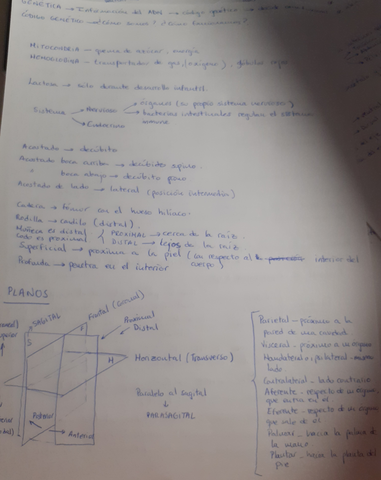 GENÉTICA → Información del ADN → código genético →
CÓDIGO GENÉTICO → ¿Cómo somos? ¿Cómo funcionamos?
MITOCONDRIA → quema de azúcar, energía
HEMOGLOBINA → transportador de gas (oxígeno), glóbulo rojo
Lactosa → sólo durante desarrollo infantil.
Sistema → Nervioso → órganos (su propio sistema nervioso)
→ Endocrino → bacterias intestinales regulan el sistema
inmune
Acostado → decúbito
Acostado boca arriba → decúbito supino.
" boca abajo → decúbito prono
Acostado de lado → lateral (posición intermedia)
Cadera → fémur en el hueso
Rodilla → (distal).
Muñeca es distal { PROXIMAL → cerca de la raíz.
Codo es proximal { DISTAL → lejos de la raíz
Superficial → próximo a la piel (con respecto al interior del
cuerpo)
Profunda → penetra en el interior
PLANOS
SAGITAL
Frontal (Coronal)
Proximal
Distal
S
F
H
Horizontal (Transverso)
Posterior
Anterior
Paralelo al sagital
↓
PARASAGITAL
Parietal → próximo a la
pared de una cavidad
Visceral → próximo a un órgano
Homolateral o ipsilateral → mismo
lado
Contralateral → lado contrario
Aferente → respecto de un órgano,
que entra en él
Eferente → respecto de un órgano
que sale de él
Palmar → hacia la palma de
la mano
Plantar → hacia la planta del
pie